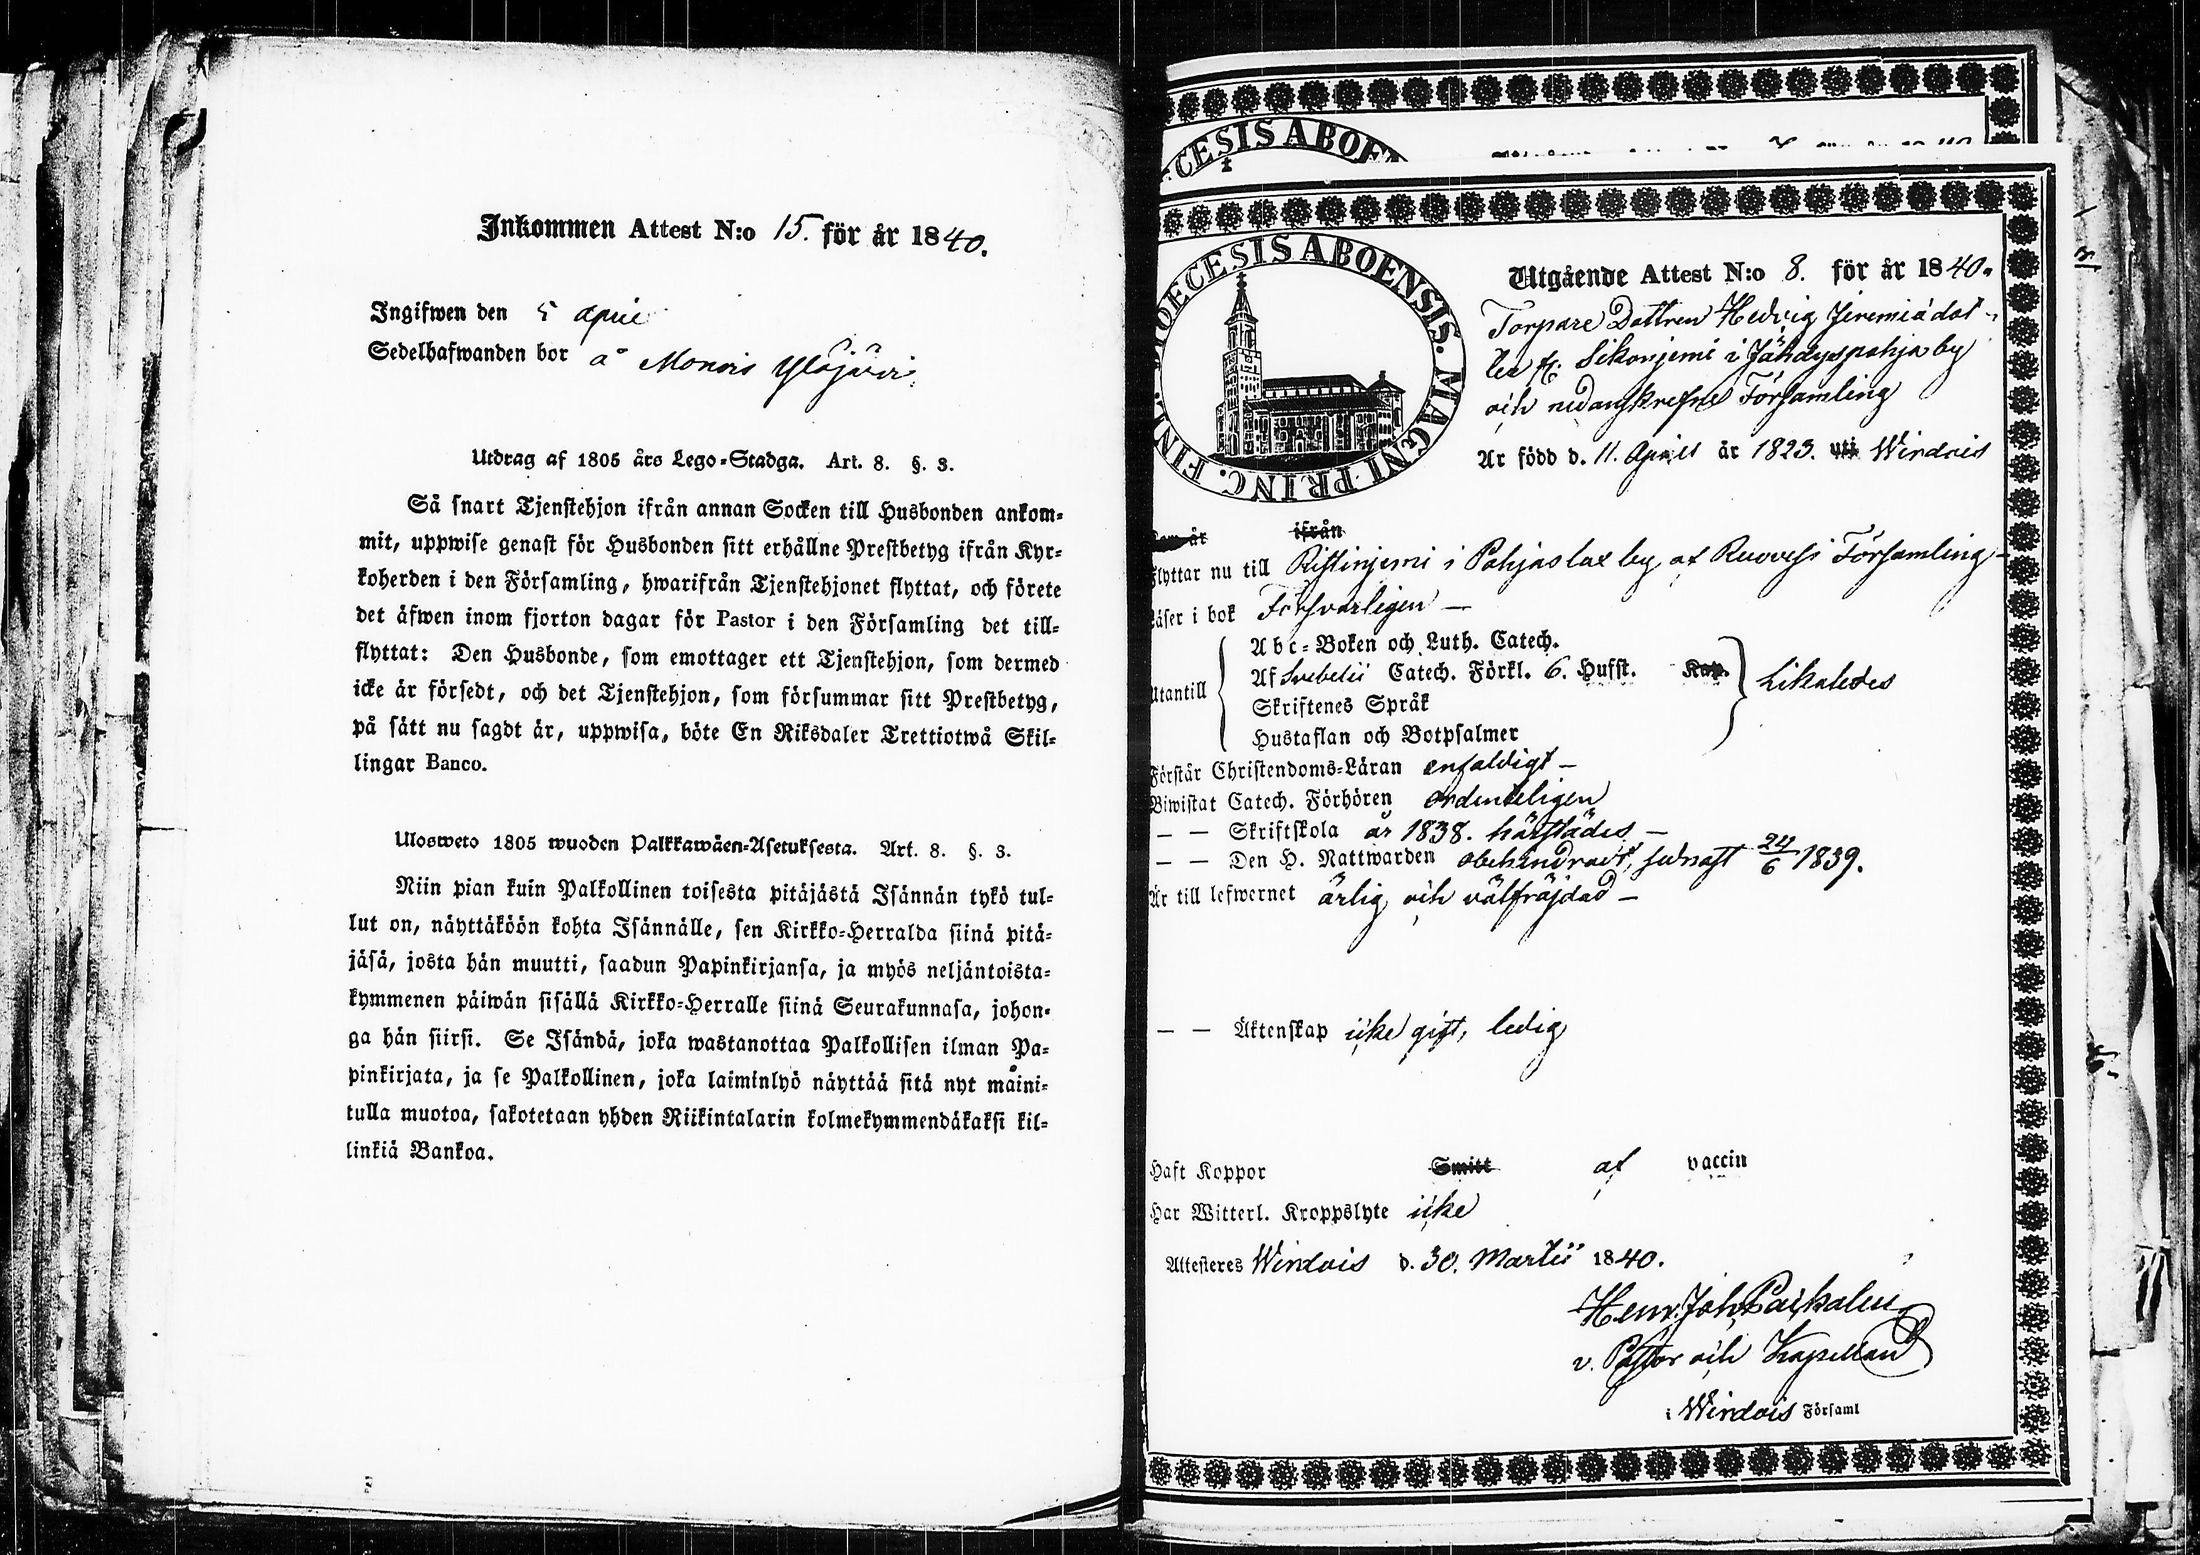 Inkommen Attest N:o 15. för år 1840.
Ingifwen den 5 April
Sedelhafwanden bor å Monois Ylöjärvi.
Utdrag af 1805 års Lego-Stadga. Art. 8. §. 3.
Så snart Tjenstehjon ifrån annan Socken till Husbonden ankom-
mit, uppwise genast för Husbonden sitt erhållne Prestbetyg ifrån Kyr-
koherden i den Församling, hwarifrån Tjenstehjonet flyttat, och förete
det äfwen inom fjorton dagar för Pastor i den Församling det till-
flyttat: Den Husbonde, som emottager ett Tjenstehjon, som dermed
icke är försedt, och det Tjenstehjon, som försummar sitt Prestbetyg,
på sätt nu sagdt är, uppwisa, böte En Riksdaler Trettiotwå Skil-
lingar Banco.
Ulosweto 1805 wuoden Palkkawäen-Asetuksesta. Art. 8. §. 3.
Niin pian kuin Palkollinen toisesta pitäjästä Isännän tykö tul-
lut on, näyttäköön kohta Isännälle, sen Kirkko-Herralda siinä pitä-
jäsä, josta hän muutti, saadun Papinkirjansa, ja myös neljäntoista-
kymmenen päiwän sisällä Kirkko-Herralle siinä Seurakunnasa, johon-
ga hän siirsi. Se Isändä, joka wastanottaa Palkollisen ilman Pa-
pinkirjata, ja se Palkollinen, joka laiminlyö näyttää sitä nyt måini-
tulla muotoa, sakotetaan yhden Riikintalarin kolmekymmendäkaksi kil-
linkiä Bankoa.
CESIS ABOEN
DIOECESIS ABOENSIS. MAGNI PRINC. FINL.
Utgående Attest N:o 8. för år 1840.
Torpare Dottren Hedvig Jeremiädot-
ter fr. Sikonjemi i Jähdyspohja by
och nedanskrefne Församling
Är född d. 11. April år 1823. uti Wirdois
Kom år ifrån
flyttar nu till Ristinjemi i Pohjaslax by af Ruovesi Församling
Läser i bok Försvarligen —
Utantill
Abc-Boken och Luth. Catech.
Af Svebelii Catech. Förkl. 6. Hufst. Kap.
Skriftenes Språk
Hustaflan och Botpsalmer
Likaledes
Förstår Christendoms-Läran enfaldigt —
Biwistat Catech. Förhören ordenteligen
— — Skriftskola år 1838. härstädes —
— — Den H. Nattwarden obehindradt, sednast 24/6 1839.
Är till lefwernet ärlig och välfräjdad —
— — Äktenskap icke gift, ledig
Haft Koppor Smitt af vaccin
Har Witterl. Kroppslyte icke
Attesteres Wirdois d. 30. Martii 1840.
Henr. Joh.
v. Pastor och Kapellan
i Wirdois Församl